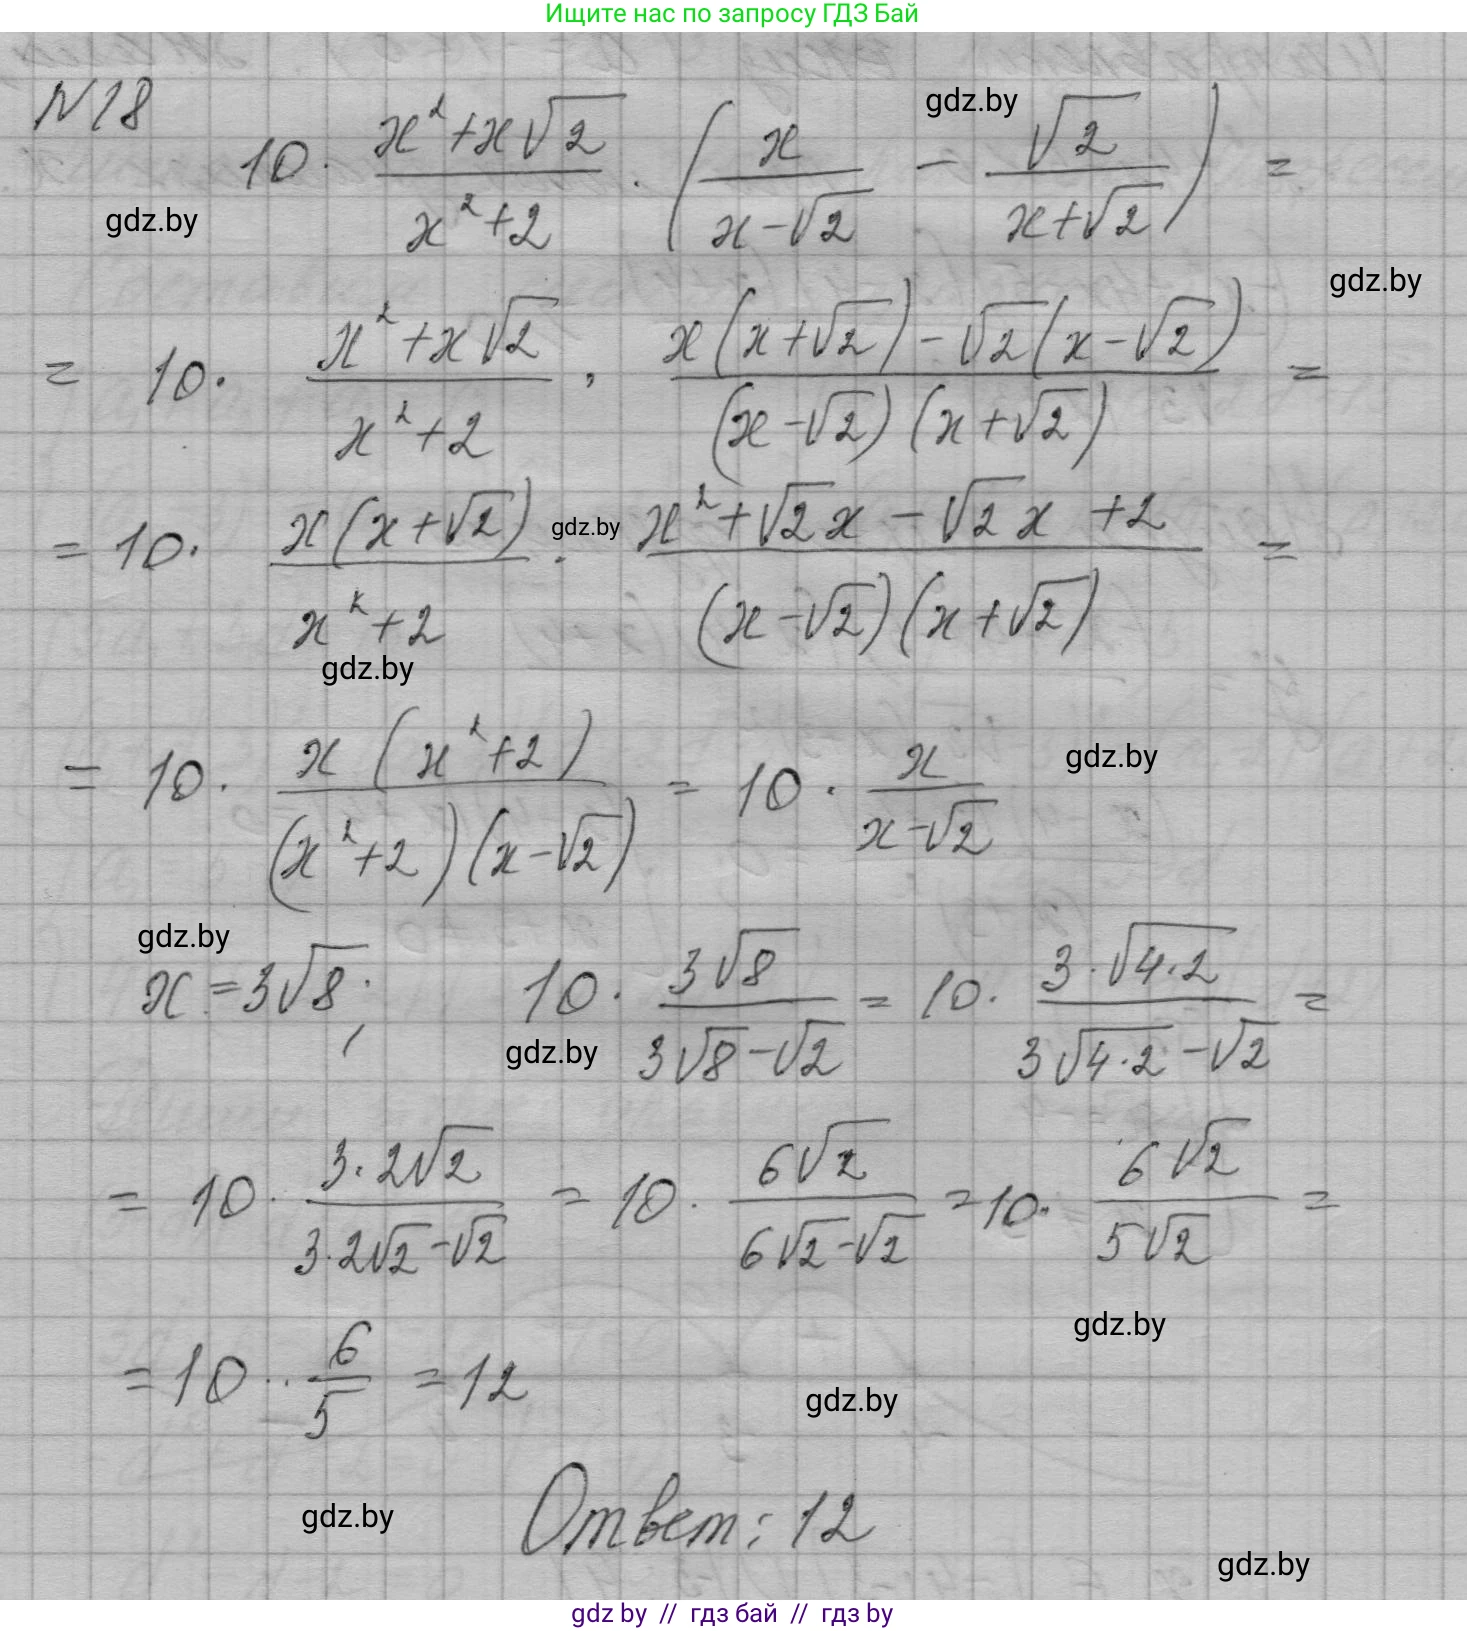 Ищите нас по запросу ГДЗ Бай
N18
10 · (x² + x√2)/(x² + 2) · (x/(x − √2) − √2/(x + √2)) =
gdz.by
gdz.by
gdz.by
= 10 · (x² + x√2)/(x² + 2) · (x(x + √2) − √2(x − √2))/((x − √2)(x + √2)) =
= 10 · x(x + √2)/(x² + 2) · (x² + √2x − √2x + 2)/((x − √2)(x + √2)) =
gdz.by
gdz.by
= 10 · x(x² + 2)/((x² + 2)(x − √2)) = 10 · x/(x − √2)
gdz.by
gdz.by
x = 3√8; 10 · 3√8/(3√8 − √2) = 10 · 3·√(4·2)/(3√(4·2) − √2) =
gdz.by
= 10 · 3·2√2/(3·2√2 − √2) = 10 · 6√2/(6√2 − √2) = 10 · 6√2/(5√2) =
gdz.by
= 10 · 6/5 = 12
gdz.by
Ответ: 12
gdz.by
gdz.by
gdz by // гдз бай // гдз by